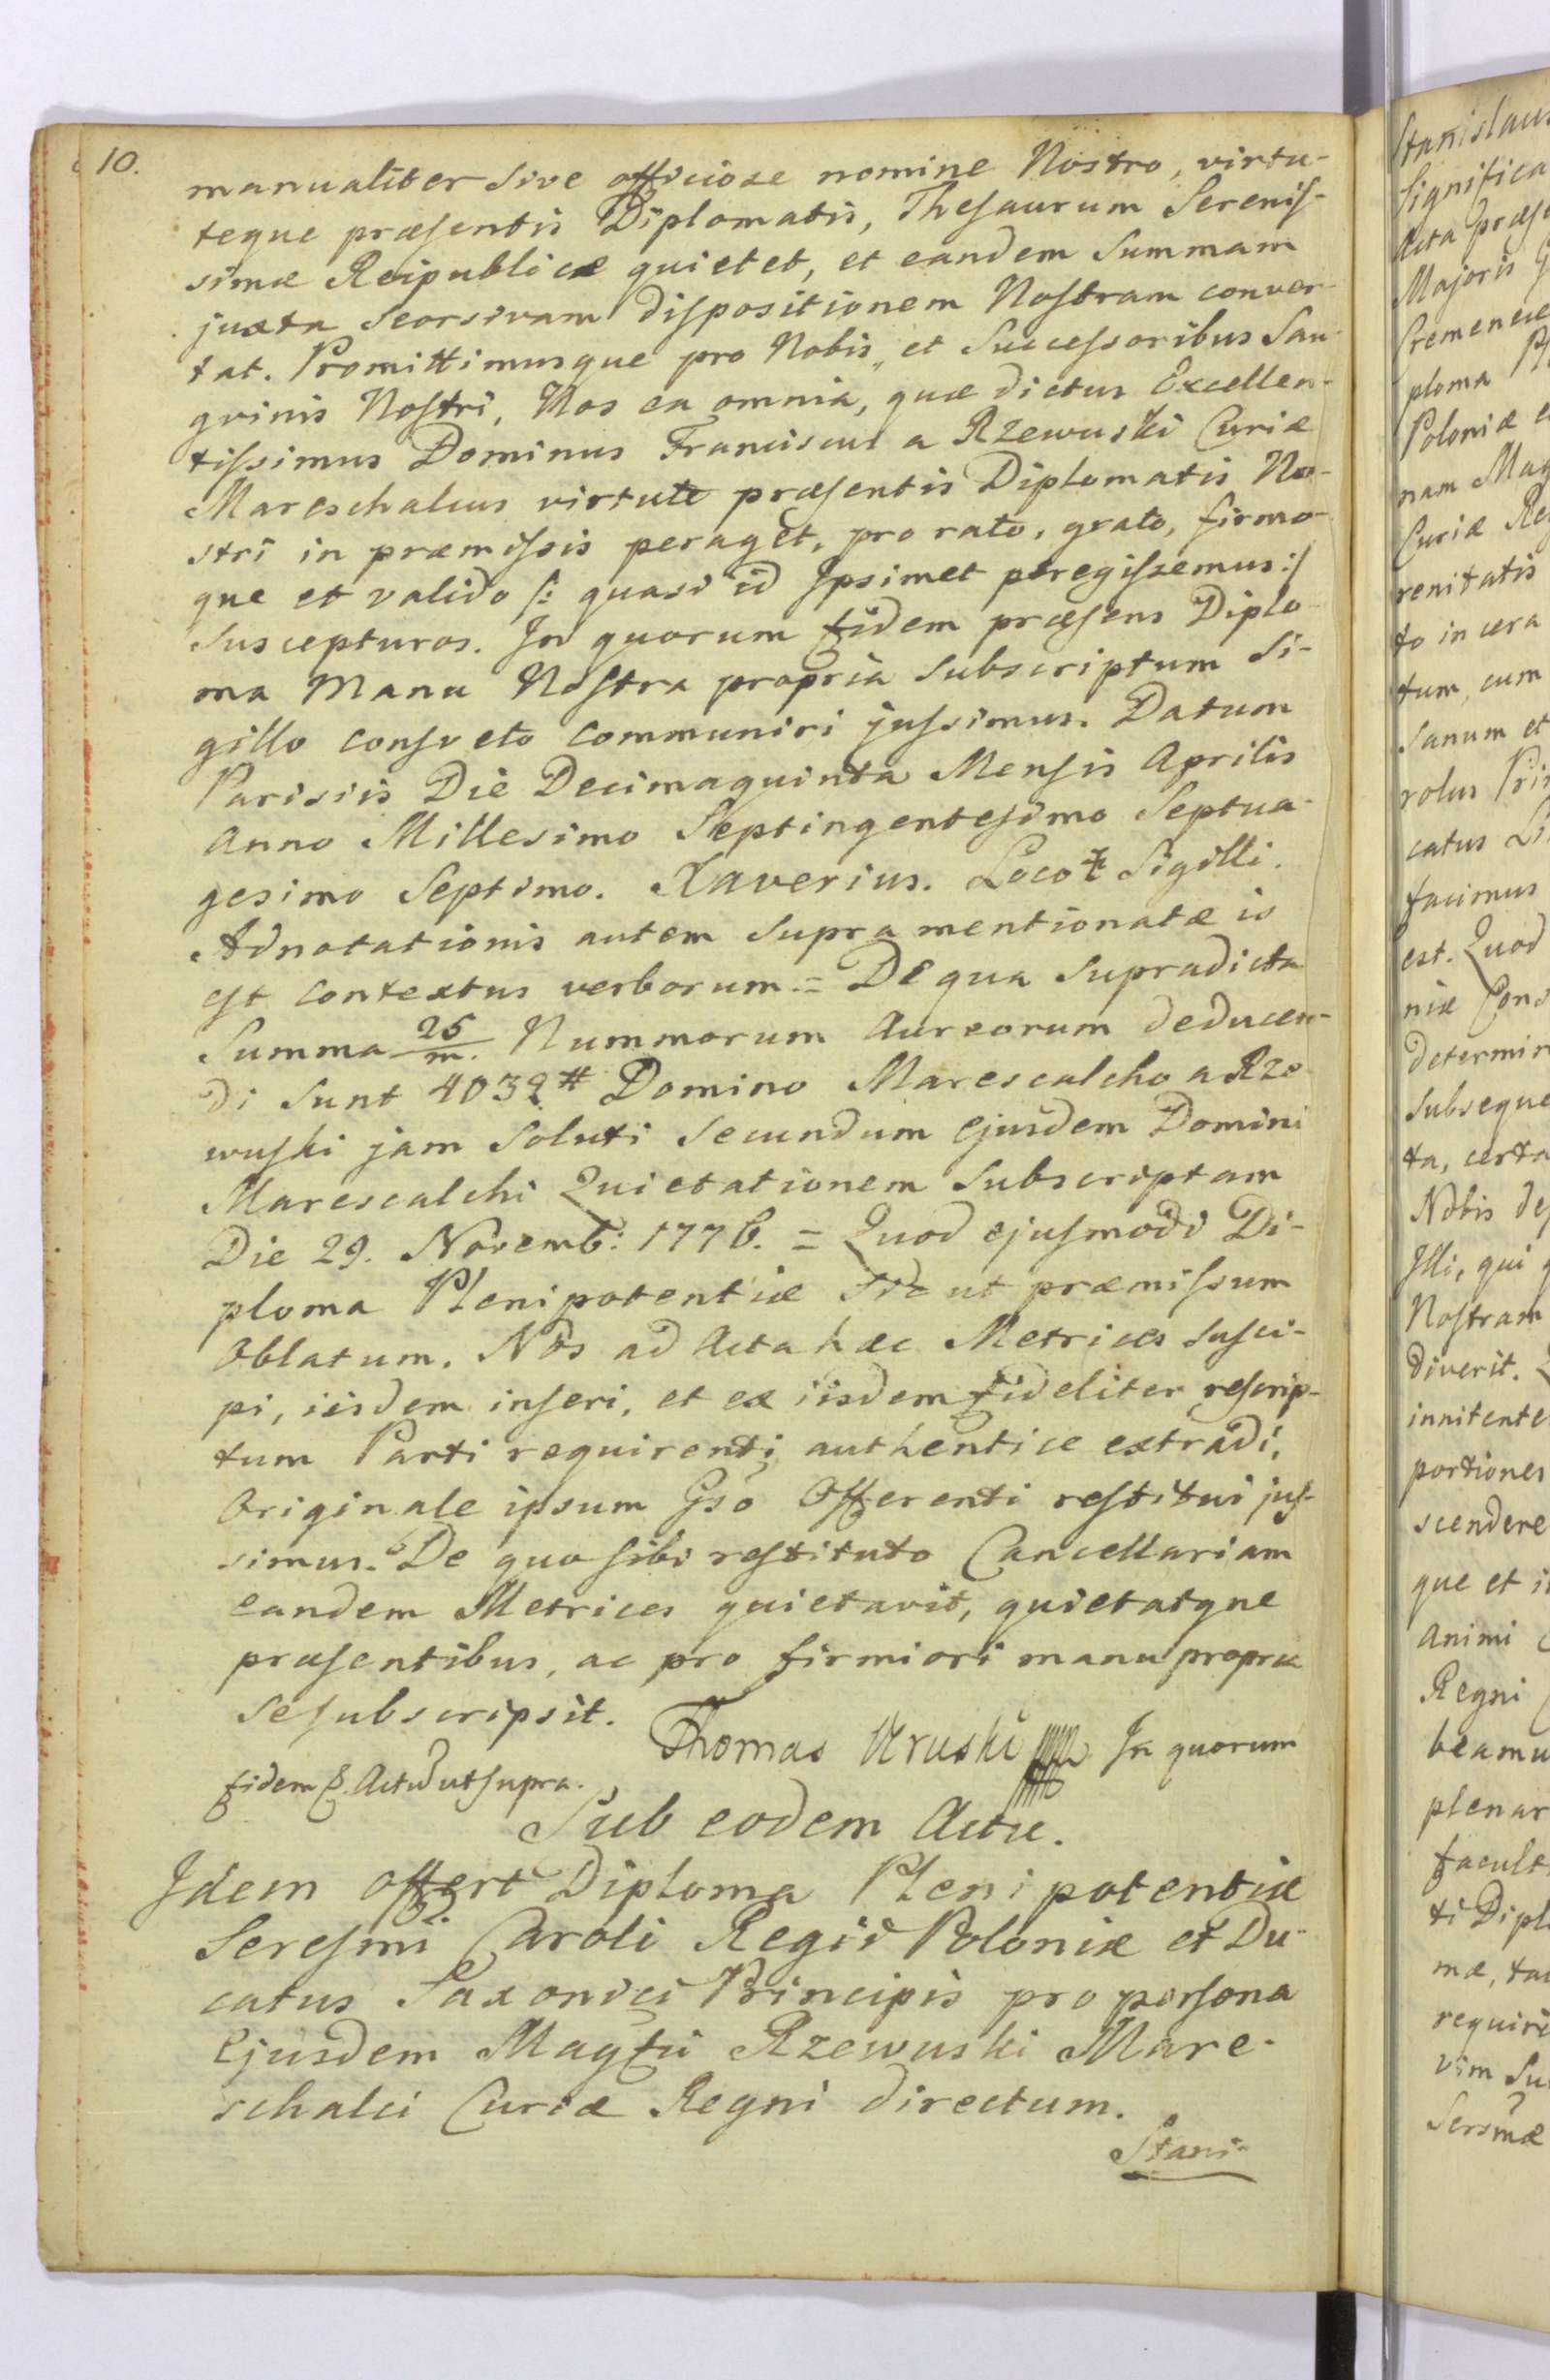 10.
manualiter sive officiose nomine Nostro, virtu-
teque præsentis Diplomatis, Thesaurum Serenis-
simæ Reipublicæ quietet, et eandem Summam
juxta Seorsivam dispositionem Nostram conver-
tat. Promittimusque pro Nobis, et Successoribus San-
gvinis Nostri, Nos ea omnia, quæ dictus Excellen-
tissimus Dominus Franciscus a Rzewuski Curiæ
Mareschalcus virtute præsentis Diplomatis No-
stri in præmissis peraget, pro rato, grato, firmo-
que et valido /: quasi id Ipsimet peregissemus :/
suscepturos. In quorum fidem præsens Diplo-
ma Manu Nostra propria subscriptum Si-
gillo consveto communiri jussimus. Datum
Parisiis Die Decimaquinta Mensis Aprilis
Anno Millesimo Septingentesimo Septua-
gesimo Septimo. Xaverius. Loco Sigilli.
Adnotationis autem supra mentionatæ is
est contextus verborum = De qua supradicta
Summa 25/m. Nummorum Aureorum deducen-
di sunt 4032# Domino Marescalcho a Rze-
wuski jam soluti secundum ejusdem Domini
Marescalchi Quietationem subscriptam
Die 29. Novemb: 1776. = Quod ejusmodi Di-
ploma Plenipotentiæ sic ut præmissum
Oblatum. Nos ad Acta hæc Metrices susci-
pi, iisdem inseri, et ex iisdem fideliter rescrip-
tum Parti requirenti authentice extradi,
Originale ipsum Gso Offerenti restitui jus-
simus. De quo sibi restituto Cancellariam
eandem Metrices quietavit, quietatque
præsentibus, ac pro firmiori manu propria
se subscripsit. Thomas Uruski In quorum
fidem &. Actu ut supra.
Sub eodem Actu.
Idem offert Diploma Plenipotentiæ
Seresmi Caroli Regii Poloniæ et Du-
catus Saxonici Principis pro persona
Ejusdem Magfci Rzewuski Mare-
schalci Curiæ Regni directum.
Stani-
Stanislaus
Significa
Acta præse
Majoris
Cremenece
ploma
Poloniæ e
nam Mag
Curiæ Reg
renitatis
to in cera
tum, cum
Sanum et
rolus Prin
catus Li
facimus
est. Quod
niæ Cons
determin
subseque
ta, certa
Nobis de
Illi, qui q
Nostram
diverit.
innitente
portiones
scendere
que et i
Animi
Regni
beamu
plenar
facult
ti Diplo
mæ, ta
requiri
vim Su
Sersmæ